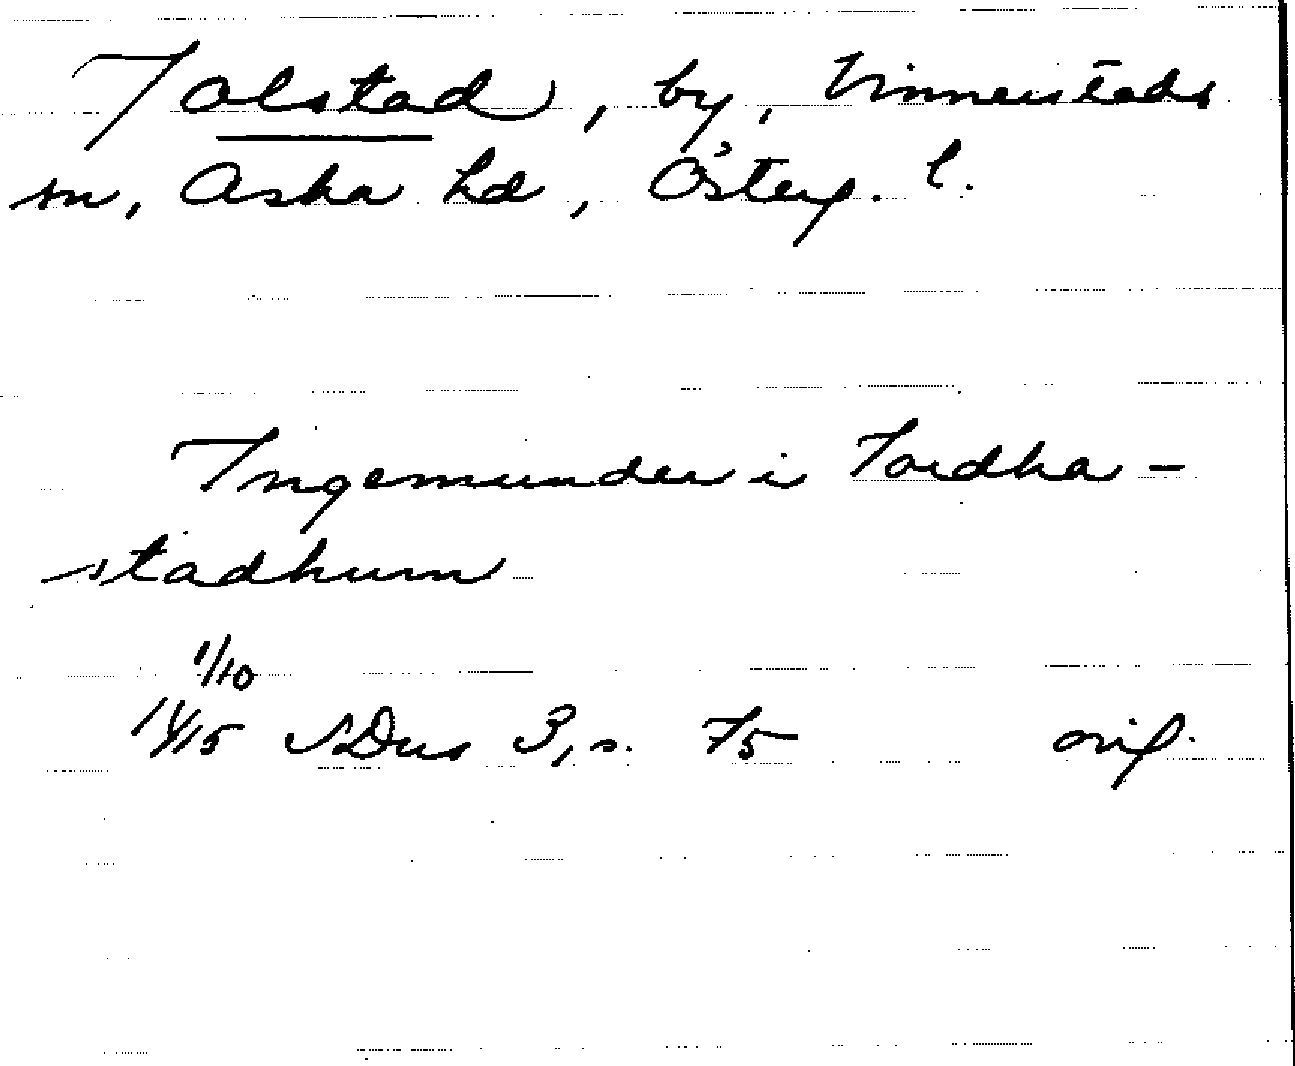 Tolstad, by, Vinnerstads
sn, Aska hd, Österg. l.
Ingemunder i Tordha-
stadhum
1/10
1415 SDns 3, s. 75 orig.